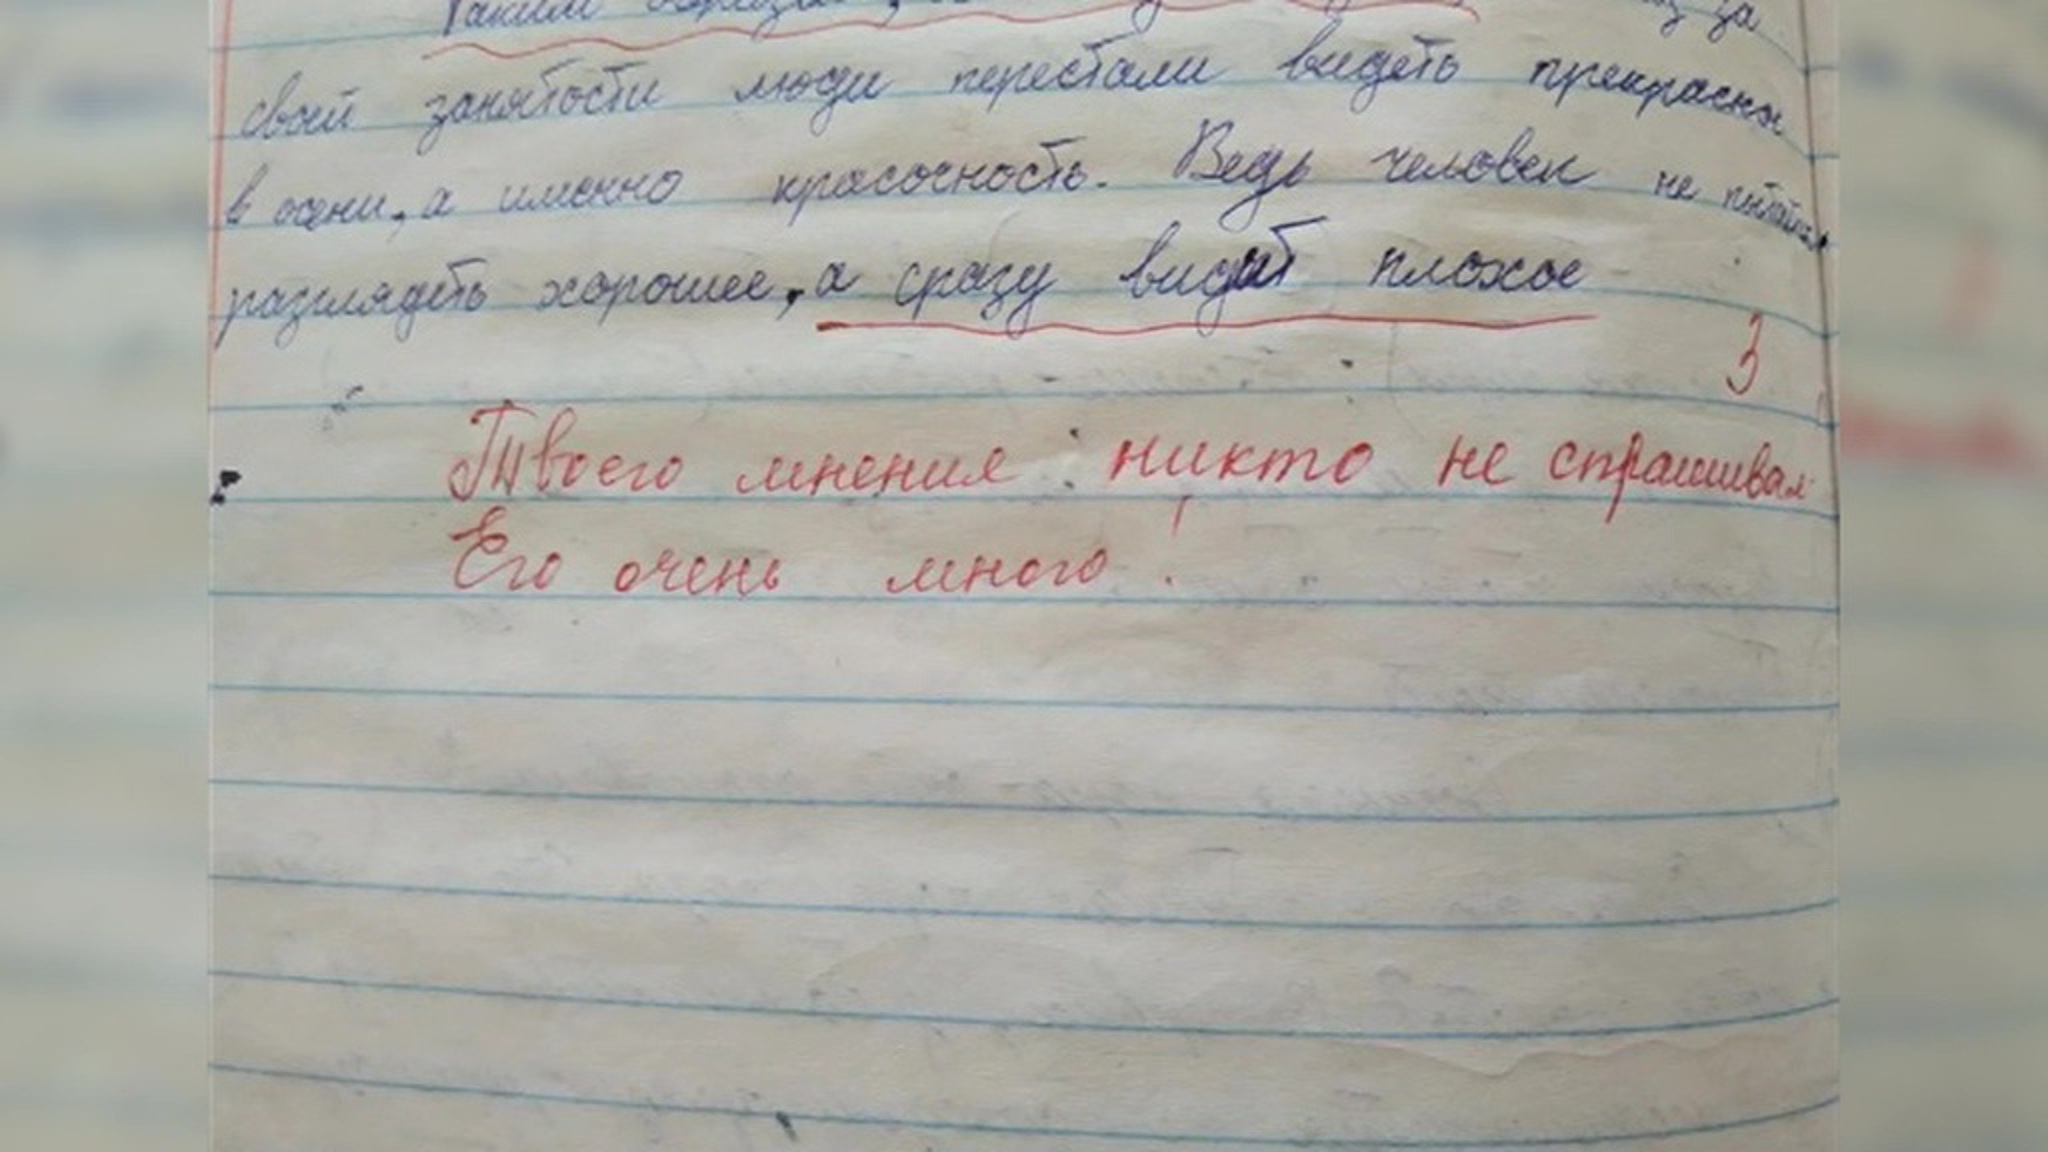 Таким образом, за
своей занятости люди перестали видеть прекрасное
в осени, а именно красочность. Ведь человек не пытается
разглядеть хорошее, а сразу видит плохое
3
Твоего мнения никто не спрашивал
Его очень много!